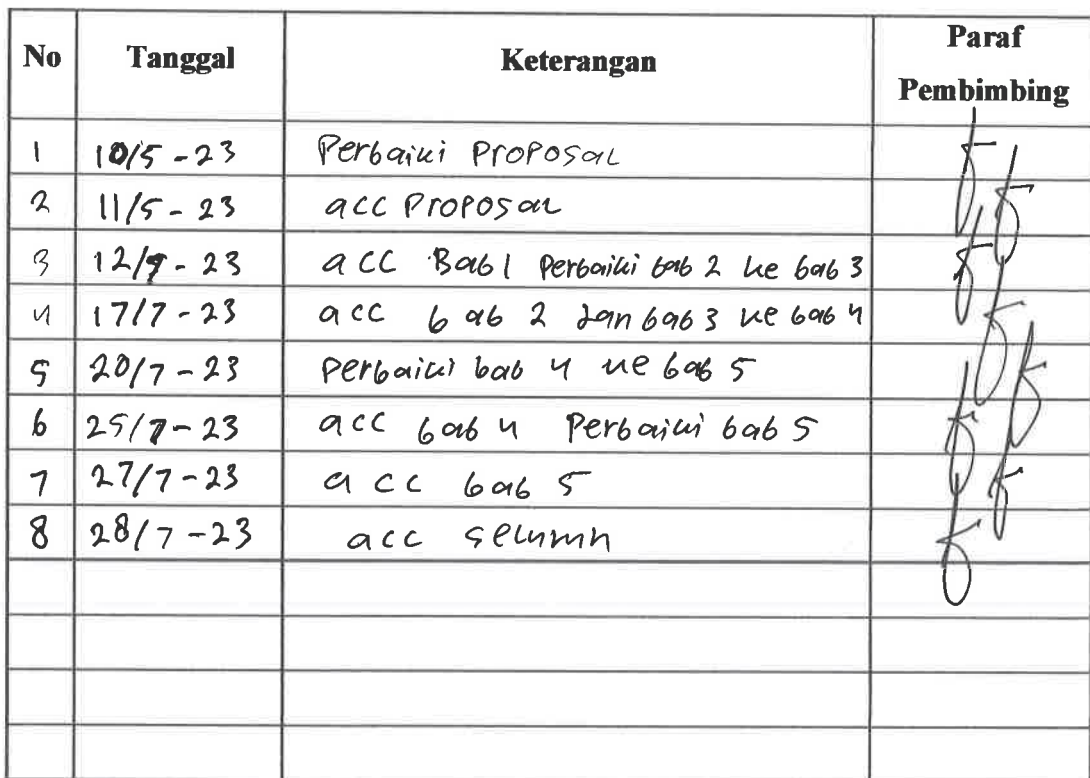 No Tanggal Keterangan Paraf Pembimbing
1 10/5-23 Perbaiki Proposal
2 11/5-23 acc Proposal
3 12/7-23 acc Bab 1 Perbaiki bab 2 ke bab 3
4 17/7-23 acc bab 2 dan bab 3 ke bab 4
5 20/7-23 Perbaiki bab 4 ke bab 5
6 25/7-23 acc bab 4 Perbaiki bab 5
7 27/7-23 acc bab 5
8 28/7-23 acc